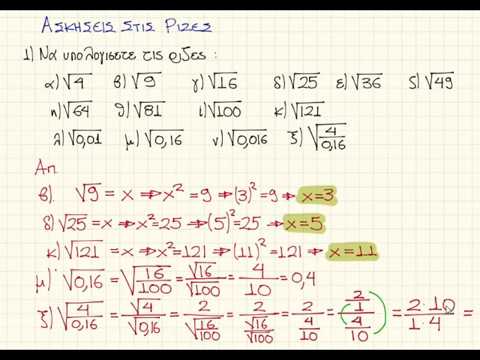 Ασκησεις στις Ριζες
1) Να υπολογισετε τις ριζες :
α) √4 β) √9 γ) √16 δ) √25 ε) √36 ς) √49
η) √64 θ) √81 ι) √100 κ) √121
λ) √0,01 μ) √0,16 ν) √0,016 ξ) √(4/0,16)
Απ
β) √9 = x ⇒ x² = 9 ⇒ (3)² = 9 ⇒ x=3
δ) √25 = x ⇒ x² = 25 ⇒ (5)² = 25 ⇒ x = 5
κ) √121 = x ⇒ x² = 121 ⇒ (11)² = 121 ⇒ x = 11
μ) √0,16 = √(16/100) = √16/√100 = 4/10 = 0,4
ξ) √(4/0,16) = √4/√0,16 = 2/√(16/100) = 2/(√16/√100) = 2/(4/10) = (2/1)/(4/10) = (2·10)/(1·4) =